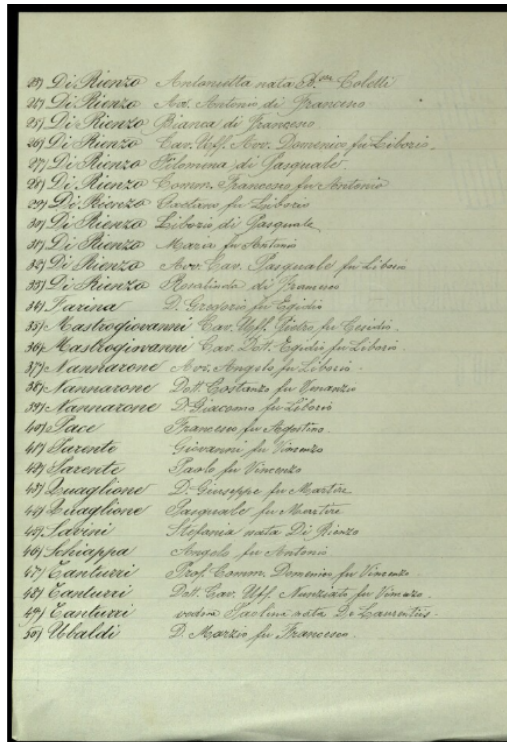 23) Di Rienzo Antonietta nata Bon Coletti
24) Di Rienzo Avv. Antonio di Francesco
25) Di Rienzo Bianca di Francesco
26) Di Rienzo Cav. Uff. Avv. Domenico fu Liborio.
27) Di Rienzo Filomena di Pasquale.
28) Di Rienzo Comm. Francesco fu Antonio
29) Di Rienzo Gaetano fu Liborio
30) Di Rienzo Liborio di Pasquale
31) Di Rienzo Maria fu Antonio
32) Di Rienzo Avv. Cav. Pasquale fu Liborio
33) Di Rienzo Rosalinda di Francesco
34) Farina D. Gregorio fu Egidio
35) Mastrogiovanni Cav. Uff. Pietro fu
36) Mastrogiovanni Cav. Dott. Egidio fu Liborio
37) Nannarone Avv. Angelo fu Liborio.
38) Nannarone Dott. Costanzo fu Venanzio
39) Nannarone D. Giacomo fu Liborio
40) Pace Francesco fu Agostino.
41) Parente Giovanni fu Vincenzo
42) Parente Paolo fu Vincenzo
43) Quaglione D. Giuseppe fu Martire
44) Quaglione Pasquale fu Martire
45) Savini Stefania nata Di Rienzo
46) Schiappa Angelo fu Antonio
47) Tanturri Prof. Comm. Domenico fu Vincenzo.
48) Tanturri Dott. Cav. Uff. Nunziato fu Vincenzo.
49) Tanturri vedova Paolina nata De Laurentiis.
50) Ubaldi D. Marzio fu Francesco.